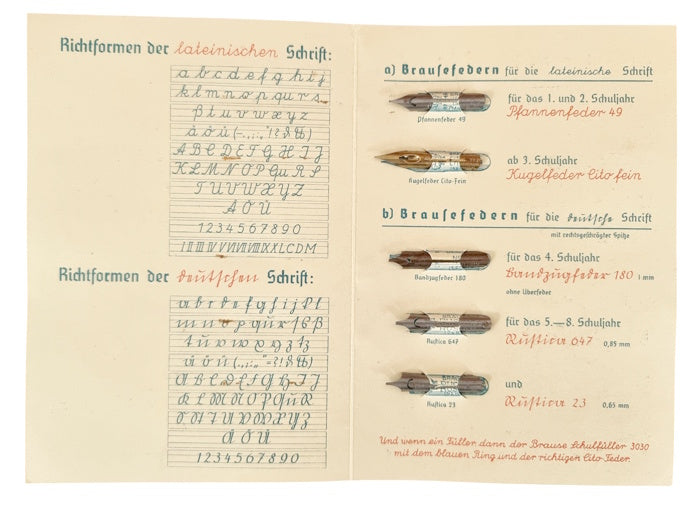 Richtformen der lateinischen Schrift:
a b c d e f g h i j
k l m n o p qu r s
ß t u v w x y z
ä ö ü
A B C D E F G H I J
K L M N O P Qu R S
T U V W X Y Z
Ä Ö Ü
1 2 3 4 5 6 7 8 9 0
I II III IV V VI VII VIII IX X L C D M
Richtformen der deutschen Schrift:
a b c d e f g h i j k l
m n o p qu r ſ s ß
t u v w x y z tz
ä ö ü
A B C D E F G H I J
K L M N O P Qu R
S St T U V W X Y Z
Ä Ö Ü
1 2 3 4 5 6 7 8 9 0
a) Brauſefedern für die lateinische Schrift
Pfannenfeder 49
für das 1. und 2. Schuljahr
Pfannenfeder 49
Kugelfeder Cito-Fein
ab 3. Schuljahr
Kugelfeder Cito fein
b) Brauſefedern für die deutſche Schrift
mit rechtsgeschrägter Spitze
Bandzugfeder 180
für das 4. Schuljahr
Bandzugfeder 180 1 mm
ohne Überfeder
Rustica 647
für das 5.—8. Schuljahr
Ruſtica 647 0,85 mm
Rustica 23
und
Ruſtica 23 0,65 mm
Und wenn ein Füller dann der Brause Schulfüller 3030
mit dem blauen Ring und der richtigen Cito Feder.